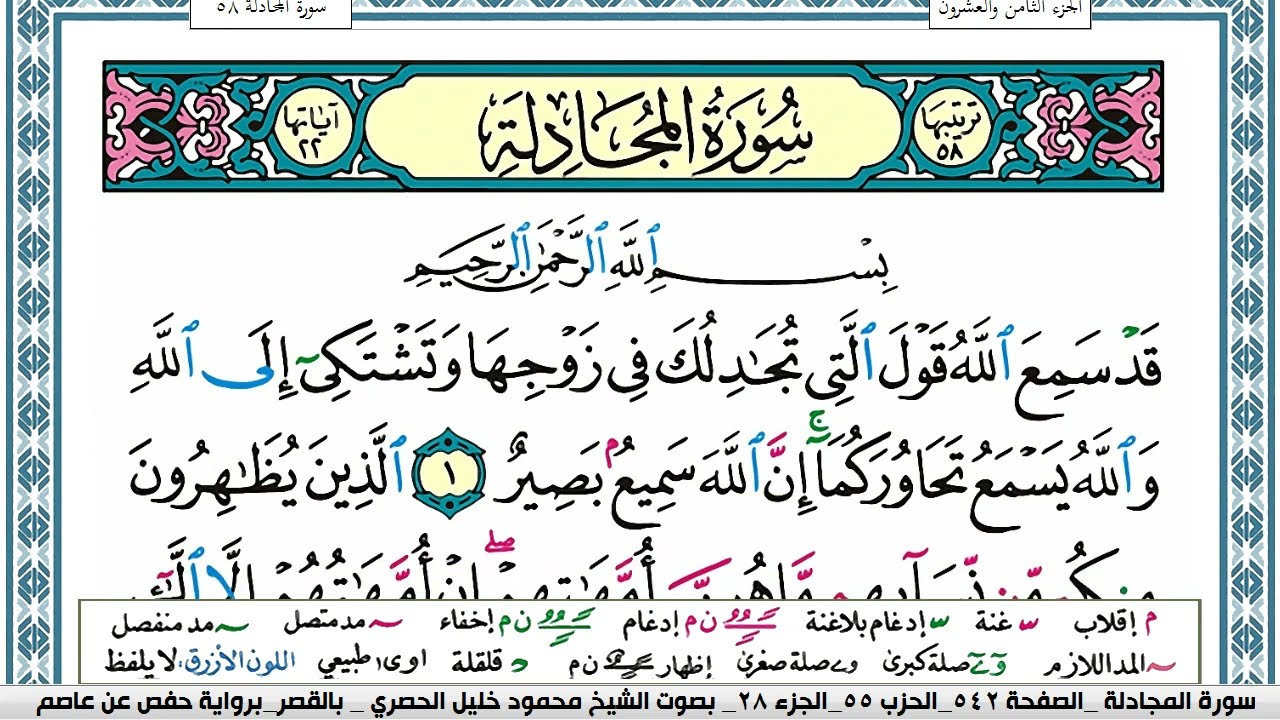 الجزء الثامن والعشرون
سورة المجادلة ٥٨
ترتيبها ٥٨
سُورَةُ المُجَادِلَةِ
آياتها ٢٢
بِسْمِ ٱللَّهِ ٱلرَّحْمَٰنِ ٱلرَّحِيمِ
قَدْ سَمِعَ ٱللَّهُ قَوْلَ ٱلَّتِى تُجَٰدِلُكَ فِى زَوْجِهَا وَتَشْتَكِىٓ إِلَى ٱللَّهِ
وَٱللَّهُ يَسْمَعُ تَحَاوُرَكُمَآ ۚ إِنَّ ٱللَّهَ سَمِيعٌۢ بَصِيرٌ ١ ٱلَّذِينَ يُظَٰهِرُونَ
مِنكُم مِّن نِّسَآئِهِم مَّا هُنَّ أُمَّهَٰتِهِمْ ۖ إِنْ أُمَّهَٰتُهُمْ إِلَّا ٱلَّٰٓـِٔى
م إقلاب غنة إدغام بلاغنة ن م إدغام ن م إخفاء مد متصل مد منفصل
المد اللازم صلة كبرى و ے صلة صغرى ن م إظهار قلقلة اوى طبيعي اللون الأزرق، لا يلفظ
سورة المجادلة _الصفحة ٥٤٢_الحزب ٥٥_الجزء ٢٨_ بصوت الشيخ محمود خليل الحصري _ بالقصر_برواية حفص عن عاصم